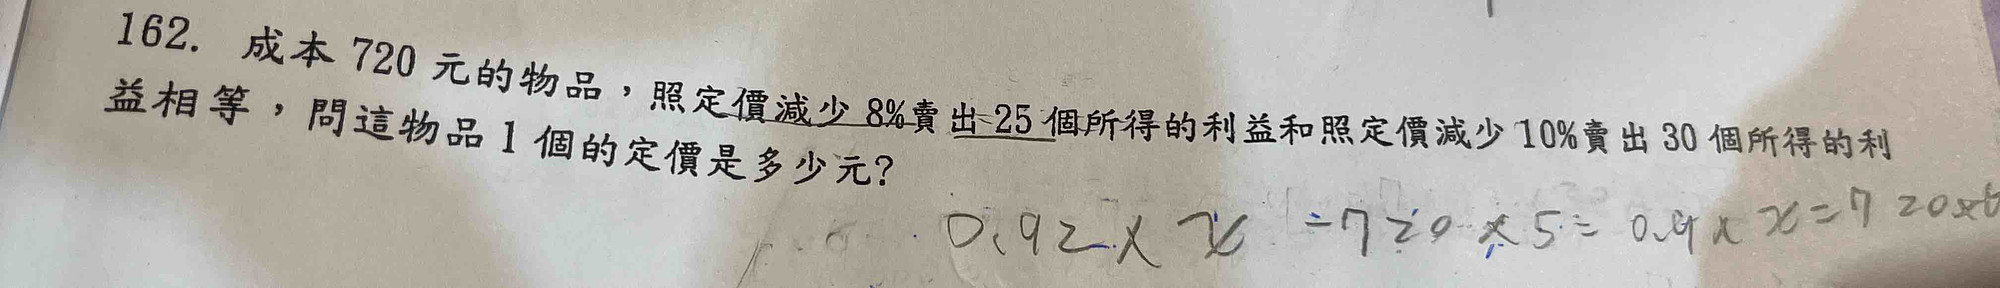 162. 成本 720 元的物品，照定價減少 8%賣出 25 個所得的利益和照定價減少 10%賣出 30 個所得的利
益相等，問這物品 1 個的定價是多少元?
0.92 × x = 720 × 5 = 0.9 × x = 720×6